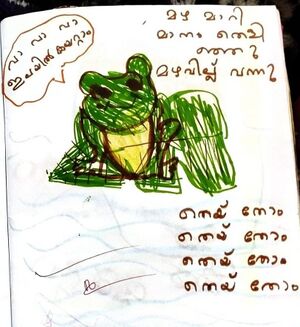 വാ വാ വാ
മഴ മാറി
മാനം തെളി
ഞ്ഞു
മഴവില്ല് വന്നു
തെയ് തോം
തെയ് തോം
തെയ് തോം
തെയ് തോം